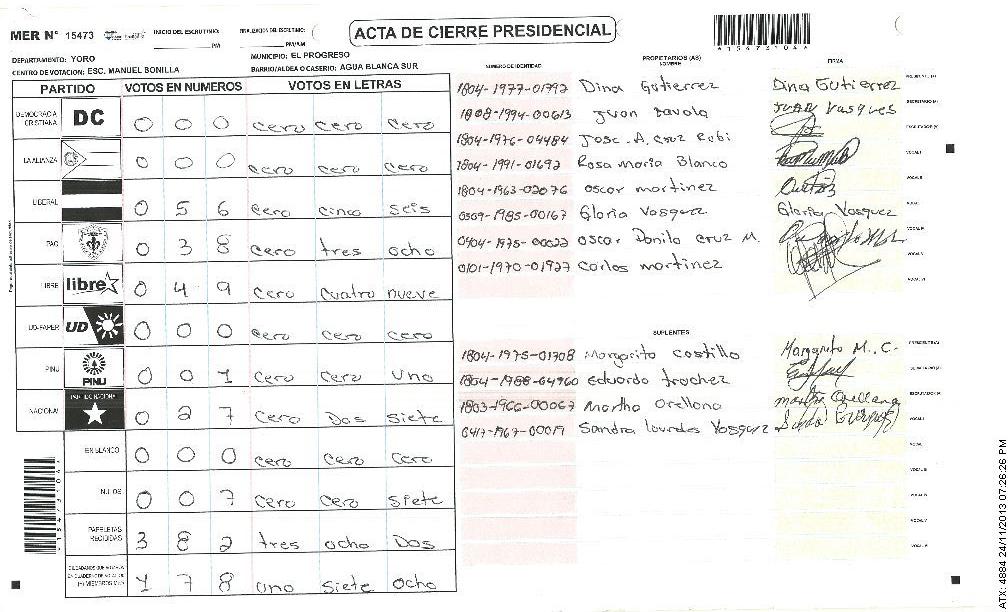 MER N° 15473 INICIO DEL ESCRUTINIO: FINALIZACION DEL ESCRUTINIO: ACTA DE CIERRE PRESIDENCIAL
PM PM/AM
*15473104*
DEPARTAMENTO: YORO MUNICIPIO: EL PROGRESO
CENTRO DE VOTACION: ESC. MANUEL BONILLA BARRIO/ALDEA O CASERIO: AGUA BLANCA SUR
PARTIDO VOTOS EN NUMEROS VOTOS EN LETRAS
DEMOCRACIA CRISTIANA DC 0 0 0 cero cero cero
LA ALIANZA 0 0 0 cero cero cero
LIBERAL 0 5 6 cero cinco seis
PAC 0 3 8 cero tres ocho
LIBRE libre 0 4 9 cero cuatro nueve
UD-FAPER UD 0 0 0 cero cero cero
PINU PINU 0 0 1 cero cero uno
NACIONAL PARTIDO NACIONAL 0 2 7 cero Dos siete
EN BLANCO 0 0 0 cero cero cero
NULOS 0 0 7 cero cero siete
PAPELETAS RECIBIDAS 3 8 2 tres ocho Dos
1 7 8 uno siete ocho
NUMERO DE IDENTIDAD PROPIETARIOS (AS) NOMBRE FIRMA
1804-1977-01792 Dina Gutierrez Dina Gutierrez
1808-1994-00613 Juan Juan Vasques
1804-1976-04484 Jose. A. Cruz Rubi
1804-1991-01692 Rosa Maria Blanco
1804-1963-02076 oscar martinez
0509-1985-00167 Gloria Vasquez Gloria Vasquez
0404-1975-00022 oscar Danilo Cruz M.
0101-1970-01927 Carlos martinez
SUPLENTES
1804-1975-01708 Margarito Castillo Margarito M. C.
1804-1988-04960 Eduardo trochez
1803-1966-00067 Martha Orellana martha Orellana
0417-1967-00019 Sandra Lourdes Vasquez
ATX: 4884 24/11/2013 07:26:26 PM